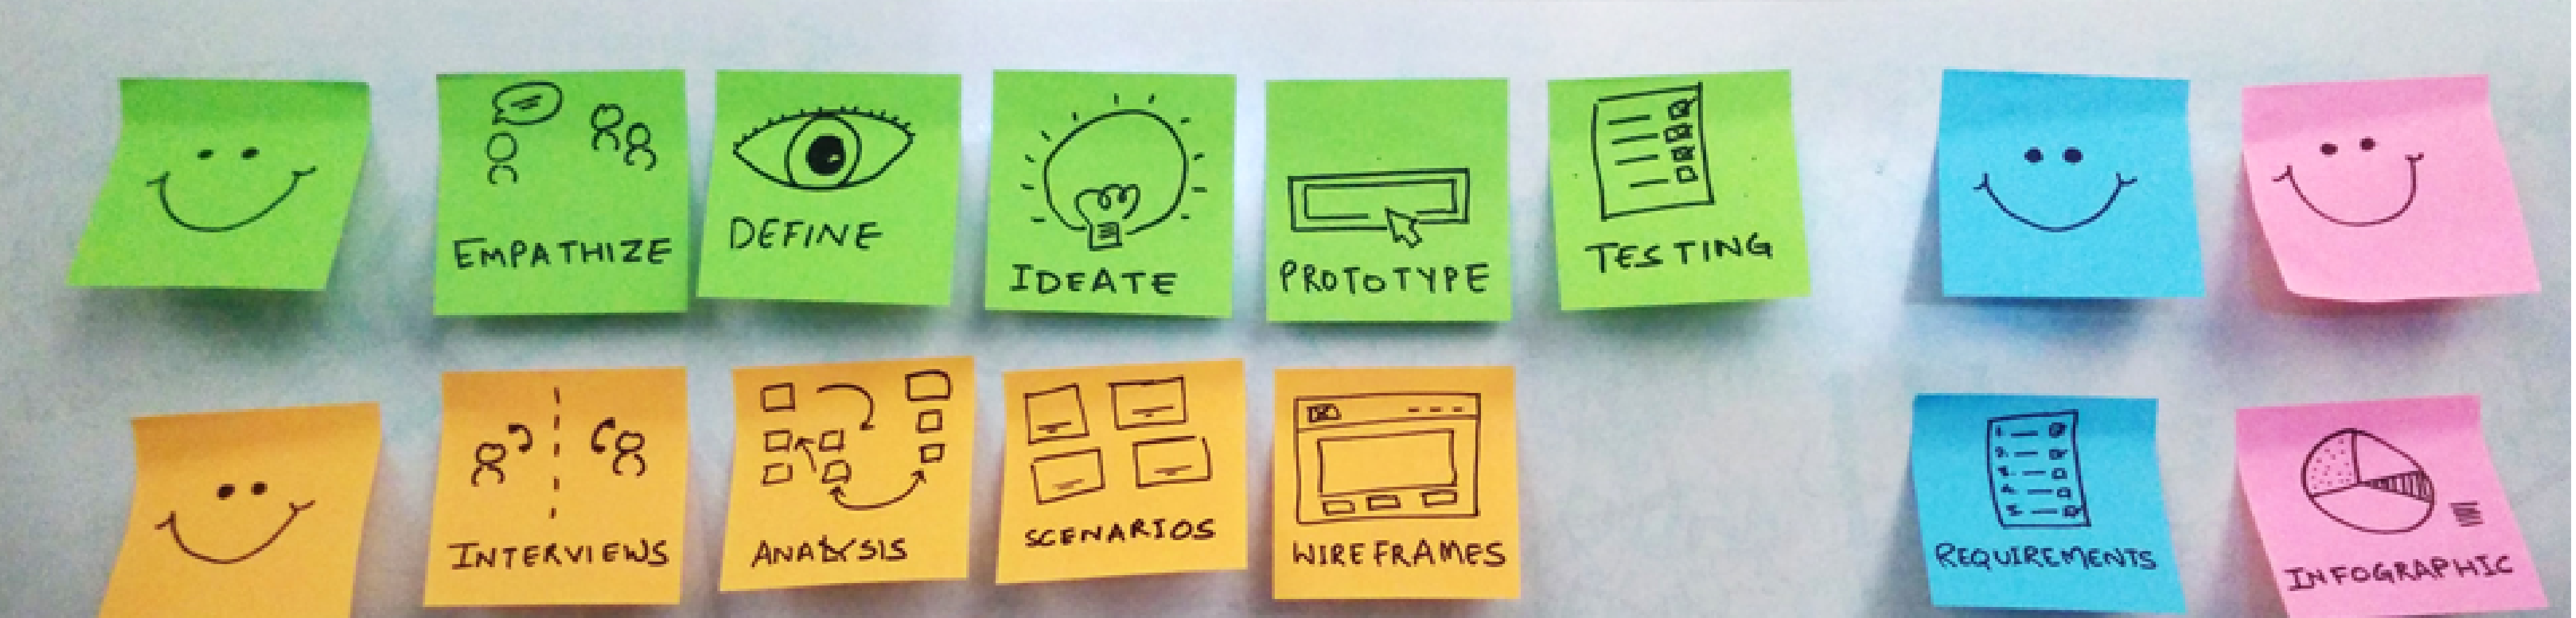 EMPATHIZE
DEFINE
IDEATE
PROTOTYPE
TESTING
INTERVIEWS
ANALYSIS
SCENARIOS
WIREFRAMES
REQUIREMENTS
INFOGRAPHIC